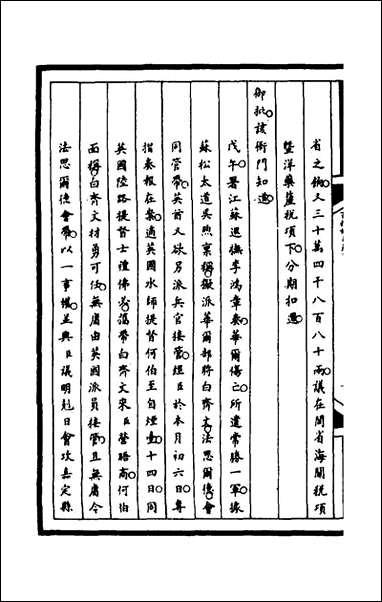 省之餉又三十萬四千八百八十兩議在閩省海關稅項
暨洋藥釐稅項下分期扣還
御批該衙門知道
戊午署江蘇巡撫李鴻章奏華爾傷亡所遺常勝一軍據
蘇松太道吳煦稟稱擬派華爾部將白齊文法思爾德會
同管帶英酋又欲另派兵官接管經臣於本月初六日專
摺奏報在案適英國水師提督何伯至自煙臺十四日同
英國陸路提督士禮佛帶白齊文來臣營晤商何伯
面稱白齊文材勇可任無庸由英國派員接管且無庸令
法思爾德會帶以一事權並與臣議明尅日會攻嘉定縣